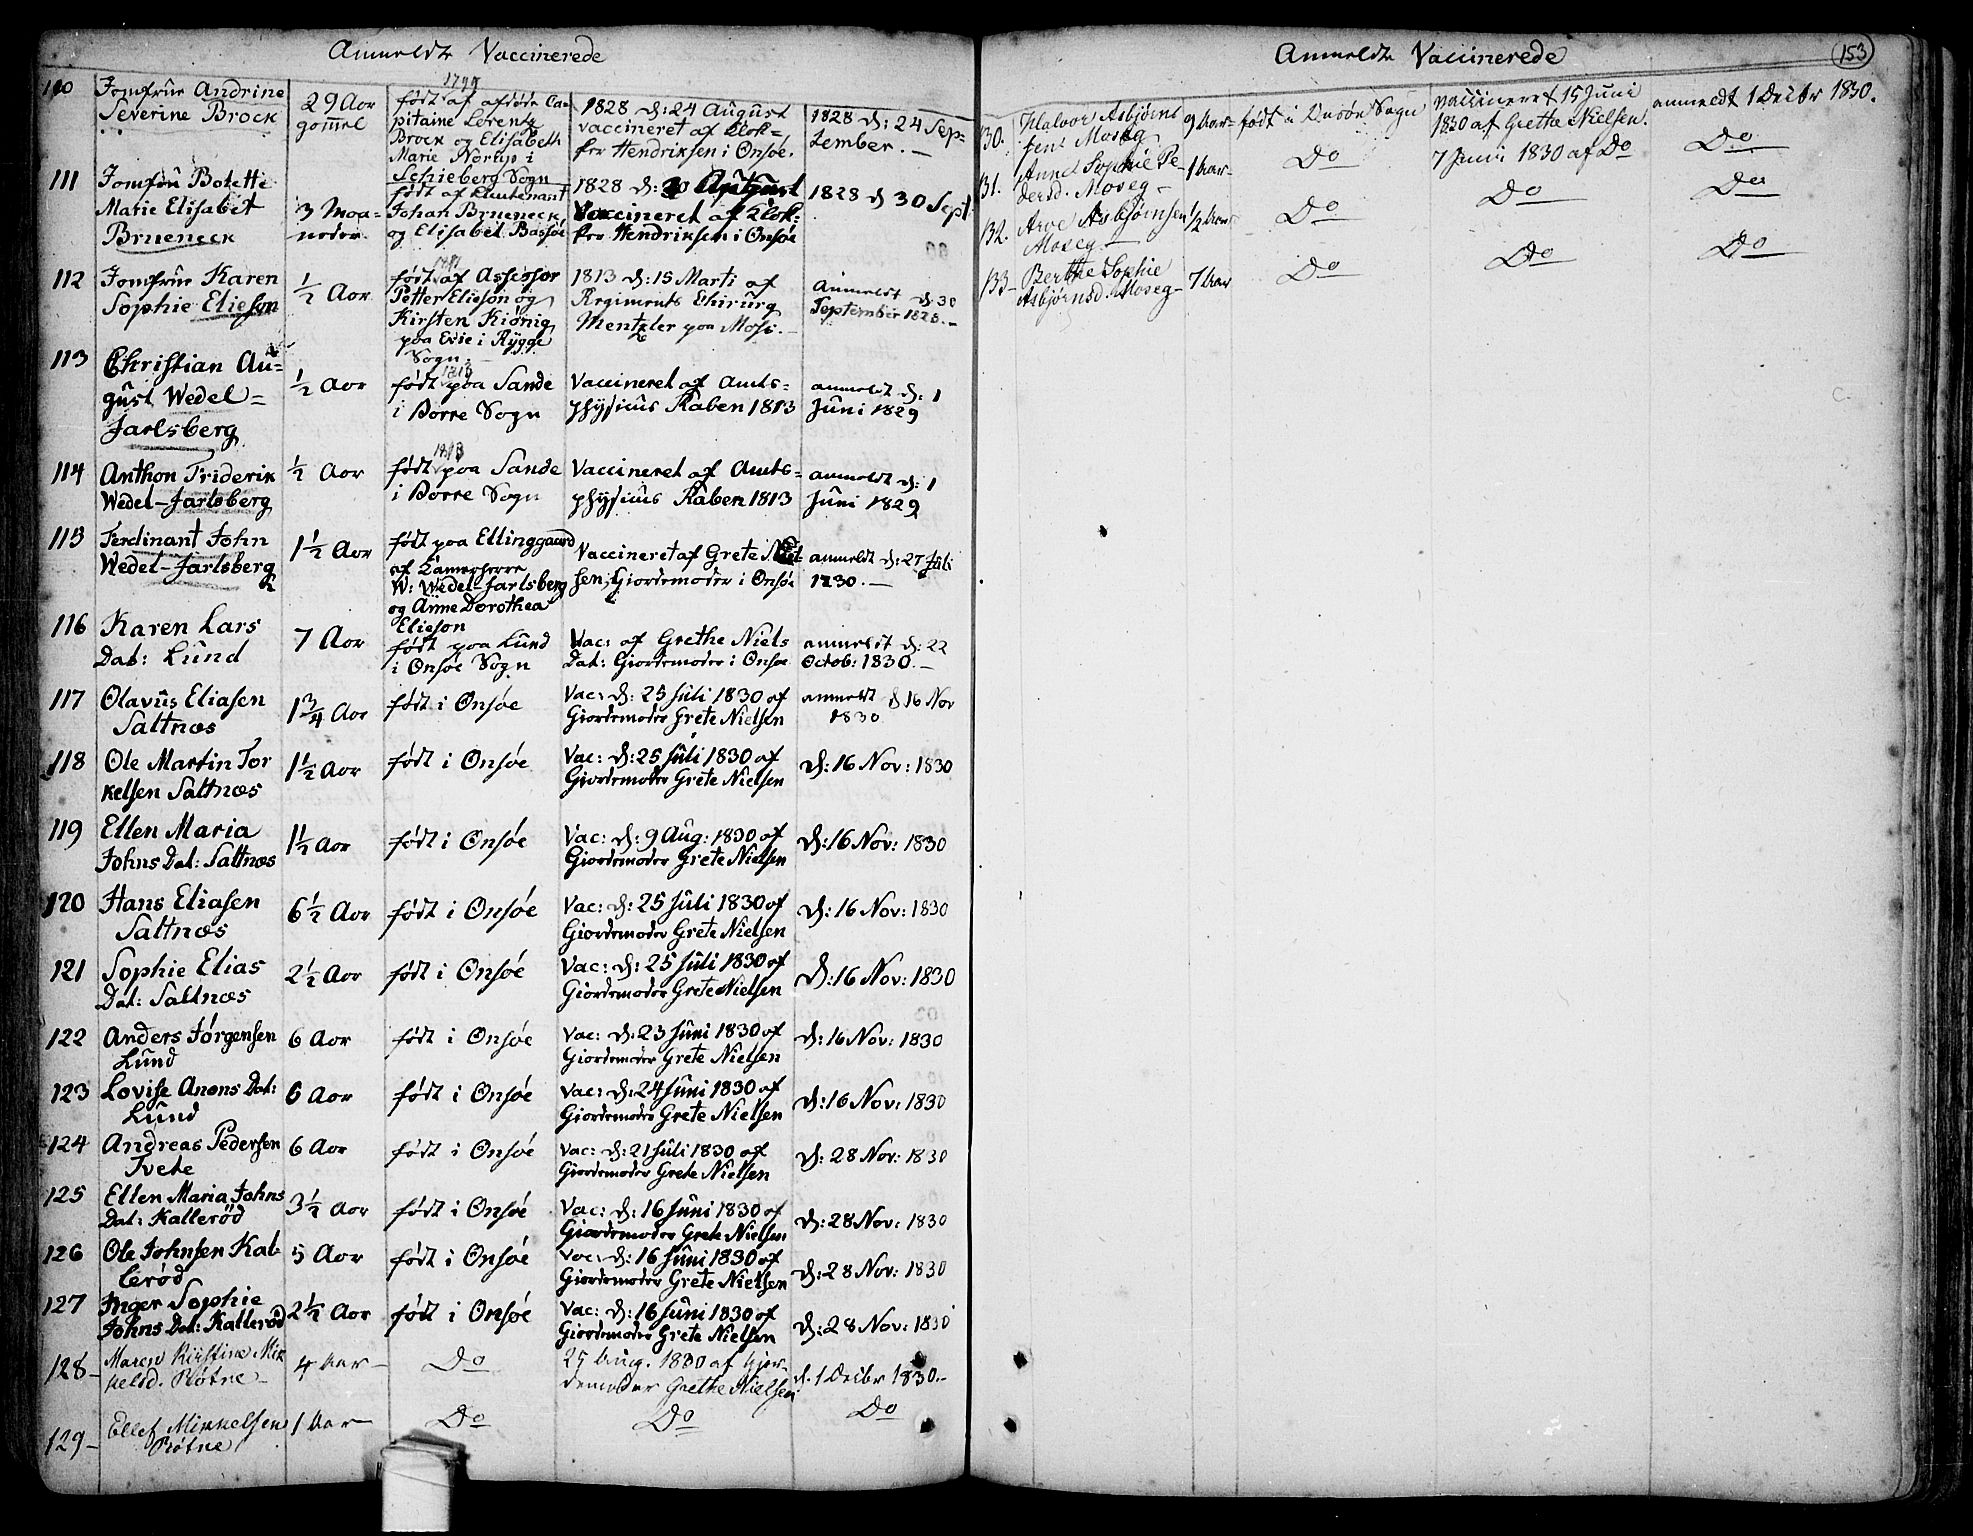 Anmeldte Vaccinerede
110 Jomfrue Andrine
Severine Brock
29 Aar
gammel
1799
født af afdøde Ca-
pitaine Lorentz
Brock og Elisabeth
Marie Nortup i
Schieberg Sogn
1828 d: 24 August
vaccineret af Klok-
ker Hendriksen i Onsøe.
1828 d: 24 Sep-
tember. —
111 Jomfru Bolette
Marie Elisabet
Brueneck
3 Maa-
neder
født af Lieutenant
Johan Brueneck
og Elisabet Bassøe
1828 d: 20 August
Vaccineret af Klok-
ker Hendriksen i Onsøe
1828 d 30 Sept
112 Jomfrue Karen
Sophie Elieson
½ Aar
født af Assessor
Petter Elieson og
Kirsten Kiønig
paa Evie i Rygge
Sogn.
1813 d: 15 Marti af
Regiments Chirurg
Mentzler paa Moss. —
Anmeldt d: 30
September 1828. —
113 Christian Au-
gust Wedel-
Jarlsberg
½ Aar
1813
født paa Sande
i Borre Sogn
Vaccineret af Amts-
physicus Raben 1813
anmeldt d: 1
Juni 1829
114 Anthon Friderik
Wedel-Jarlsberg
½ Aar
1813
født paa Sande
i Borre Sogn
Vaccineret af Amts-
physicus Raben 1813
anmeldt d: 1
Juni 1829
115 Ferdinant John
Wedel-Jarlsberg
1½ Aar
født paa Ellinggaard
af Kamerherre
W: Wedel-Jarlsberg
og Anne Dorothea
Elieson
Vaccineret af Grete Niel-
sen, Giordemoder i Onsøe
anmeldt d: 27 Juli
1830. —
116 Karen Lars
Dat: Lund
7 Aar
født paa Lund
i Onsøe Sogn
Vac: af Grethe Niels
Dat: Giordemoder i Onsøe
anmeldt d: 22
Octob: 1830. —
117 Olavus Eliasen
Saltnæs
1¾ Aar
født i Onsøe
Vac: d: 25 Juli 1830 af
Giordemoder Grete Nielsen
anmeldt d 16 Nov
1830
118 Ole Martin Tor
kelsen Saltnæs
1½ Aar
født i Onsøe
Vac: d: 25 Juli 1830 af
Giordemoder Grete Nielsen
d: 16 Nov: 1830
119 Ellen Maria
Johns Dat: Saltnæs
1½ Aar
født i Onsøe
Vac: d: 9 Aug: 1830 af
Giordemoder Grete Nielsen
d: 16 Nov: 1830
120 Hans Eliasen
Saltnæs
6½ Aar
født i Onsøe
Vac: d: 25 Juli 1830 af
Giordemoder Grete Nielsen
d: 16 Nov: 1830
121 Sophie Elias
Dat: Saltnæs
2½ Aar
født i Onsøe
Vac: d: 25 Juli 1830 af
Giordemoder Grete Nielsen
d: 16 Nov: 1830
122 Anders Jørgensen
Lund
6 Aar
født i Onsøe
Vac: d: 23 Juni 1830 af
Giordemoder Grete Nielsen
d: 16 Nov: 1830
123 Lovise Anons Dat:
Lund
6 Aar
født i Onsøe
Vac: d: 24 Juni 1830 af
Giordemoder Grete Nielsen
d: 16 Nov: 1830
124 Andreas Pedersen
Tvete
6 Aar
født i Onsøe
Vac: d: 21 Juli 1830 af
Giordemoder Grete Nielsen
d: 28 Nov: 1830
125 Ellen Maria Johns
Dat: Kallerød
3½ Aar
født i Onsøe
Vac: d: 16 Juni 1830 af
Giordemoder Grete Nielsen
d: 28 Nov: 1830
126 Ole Johnsen Kal-
lerød
5 Aar
født i Onsøe
Vac: d: 16 Juni 1830 af
Giordemoder Grete Nielsen
d: 28 Nov: 1830
127 Inger Sophie
Johns Dat: Kallerød
2½ Aar
født i Onsøe
Vac: d: 16 Juni 1830 af
Giordemoder Grete Nielsen
d: 28 Nov: 1830
128 - Maren Kirstine Mik
kelsd. Røtne -
4 Aar -
Do
25 Aug. 1830 af Gjor-
demoder Grethe Nielsen
d. 1 Decbr 1830. -
129 - Ellef Mikkelsen
Røtne
1 Aar -
Do
Do
Do
Anmeldte Vaccinerede
153
130. Halvor Asbjørns
sens Moseg
9 Aar -
født i Onsøe Sogn
vaccineret 15 Juni
1830 af Grethe Nielsen.
anmeldt 1 Decbr 1830.
131. Anne Sophie Pe-
dersd. Moseg -
1 Aar -
Do
7 Juni 1830 af Do
Do
132. Arve Asbjørnsen
Moseg. -
½ Aar
Do
Do
Do
133 - Berthe Sophie
Asbjørnsd. Moseg -
7 Aar
Do
Do
Do